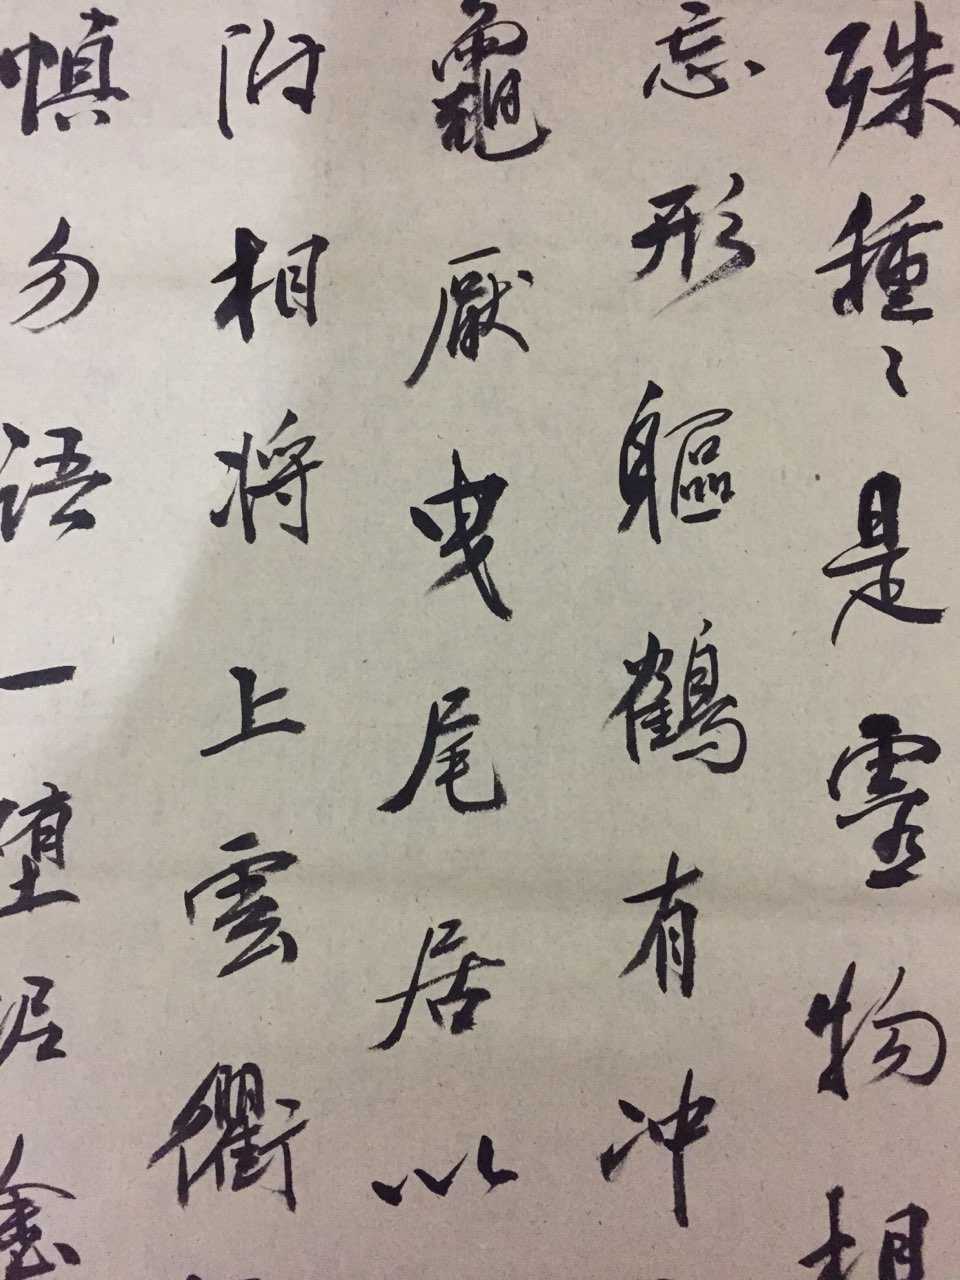 殊種々是靈物相
忘形軀鶴有冲
龜厭曳尾居以
附相將上雲衢
慎勿語一墮泥塗